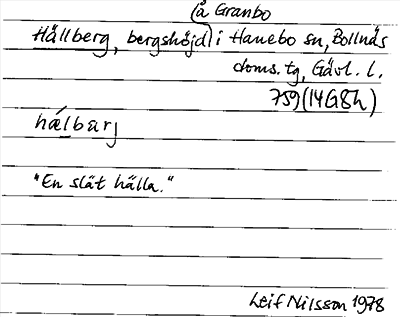 (å Granbo
Hällberg, bergshöjd) i Hanebo sn, Bollnäs
doms. tg, Gävl. l.
759 (14G8h)
hǽlbarj
"En slät hälla."
Leif Nilsson 1978